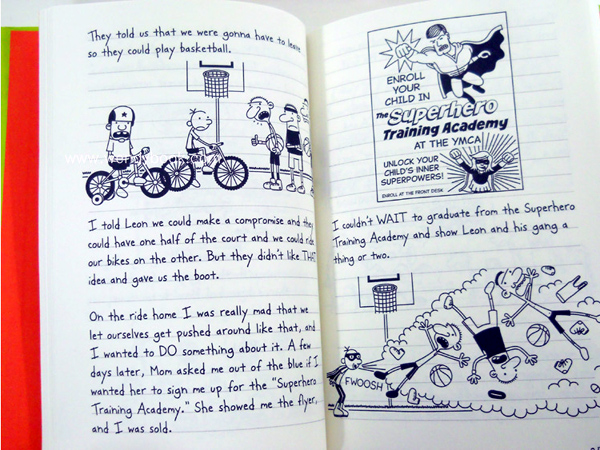 They told us that we were gonna have to leave
so they could play basketball.
I told Leon we could make a compromise and they
could have one half of the court and we could ride
our bikes on the other. But they didn't like THAT
idea and gave us the boot.
On the ride home I was really mad that we
let ourselves get pushed around like that, and
I wanted to DO something about it. A few
days later, Mom asked me out of the blue if I
wanted her to sign me up for the "Superhero
Training Academy." She showed me the flyer,
and I was sold.
ENROLL
YOUR
CHILD IN
The Superhero
Training Academy
AT THE YMCA
UNLOCK YOUR
CHILD'S INNER
SUPERPOWERS!
ENROLL AT THE FRONT DESK
I couldn't WAIT to graduate from the Superhero
Training Academy and show Leon and his gang a
thing or two.
FWOOSH